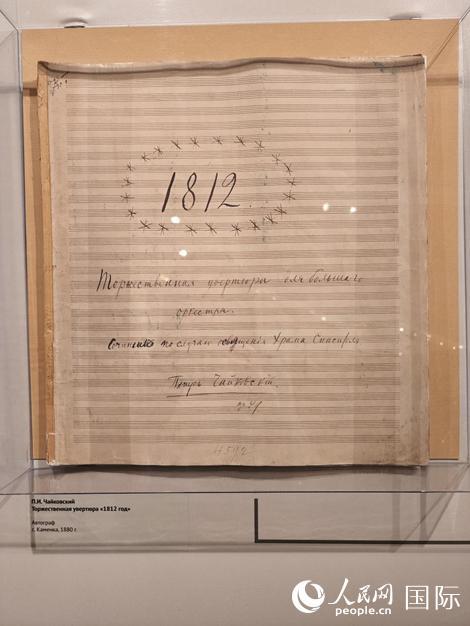 1812.
Торжественная увертюра для большаго
оркестра.
Сочинено по случаю освящения Храма Спасителя
Петръ Чайковскій.
4592
П.И. Чайковский
Торжественная увертюра «1812 год»
Автограф
с. Каменка, 1880 г.
人民网 国际
people.cn